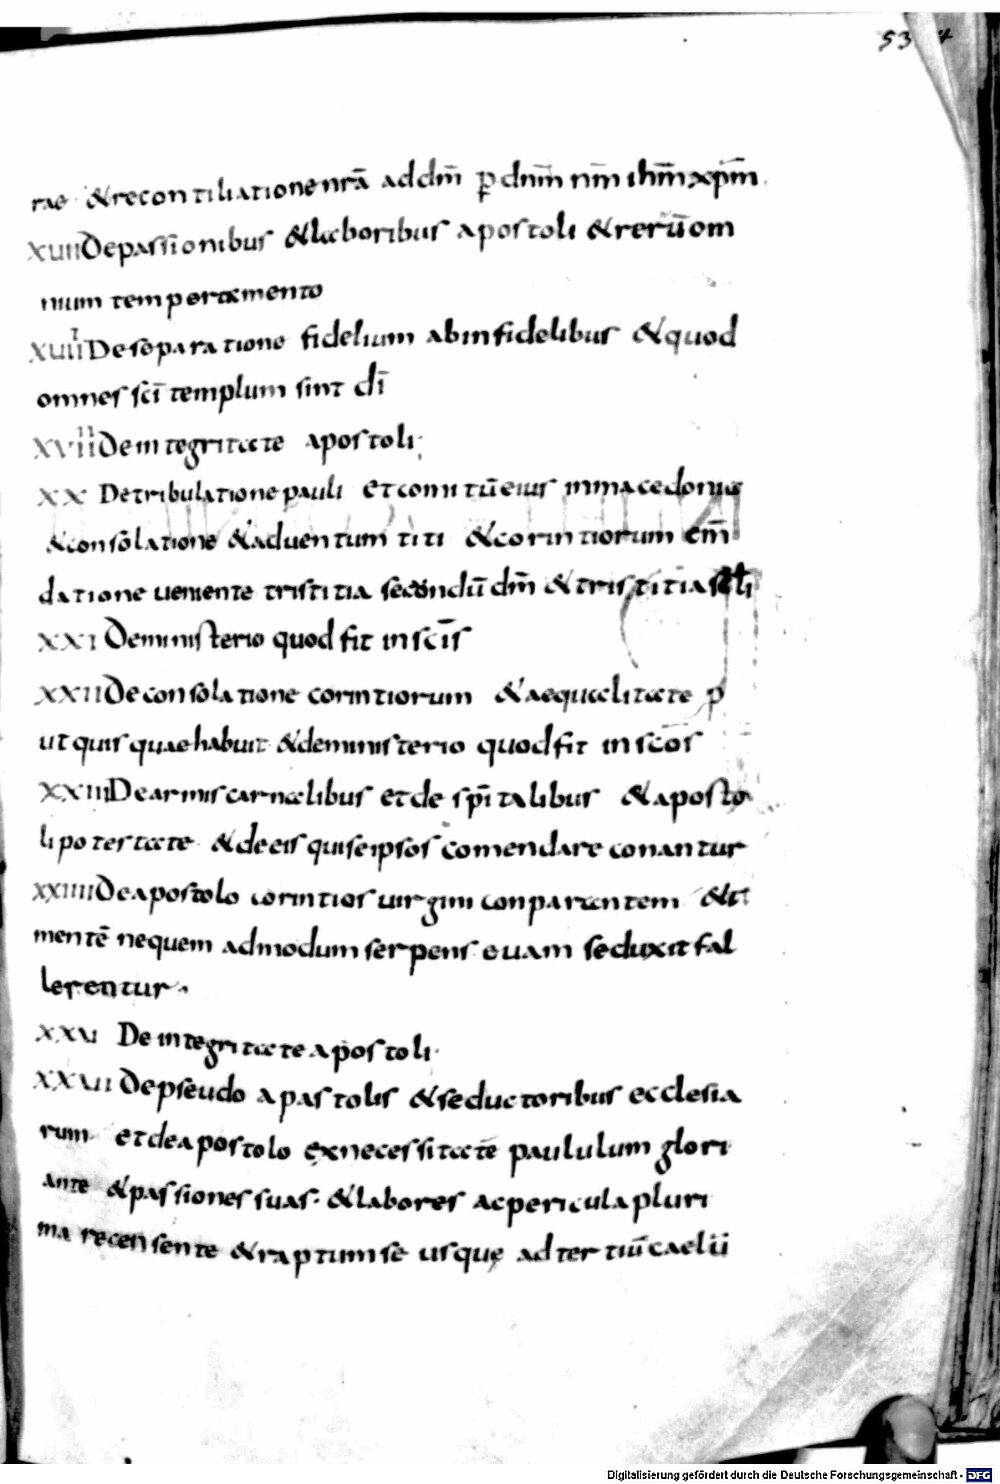 53
rae &reconciliatione nr̄a ad dm̄ p̱ dnm̄ nm̄ ihm̄ xpm̄.
XVII De passionibus &laboribus apostoli &rerū om
nium temperamento
XVIII De separatione fidelium ab infidelibus &quod
omnes sc̄i templum sint dī
XVIIII De integritate apostoli;
XX De tribulatione pauli et comitū eius in macedonia
&consolatione &aduentum titi &corintiorum em̄
datione uemente tristitia secundū dm̄ &tristitia scl̄i
XXI De ministerio quod fit in sc̄īs
XXII De consolatione corintiorum &aequalitate p
ut quis quae habuit &de ministerio quod fit in sc̄os
XXIII De armis carnalibus et de spī talibus &aposto
li potestate &de eis qui se ipsos comendare conantur
XXIIII De apostolo corintios uirgini conparantem &ti
mentē ne quem admodum serpens euam seduxit fal
lerentur.
XXV De integritate apostoli.
XXVII De pseudo apastolis &seductoribus ecclesia
rum et de apostolo ex necessitatē paululum glori
ante &passiones suas. &labores ac pericula pluri
ma recensente &raptum se usque ad tertiū caelii
Digitalisierung gefördert durch die Deutsche Forschungsgemeinschaft - DFG